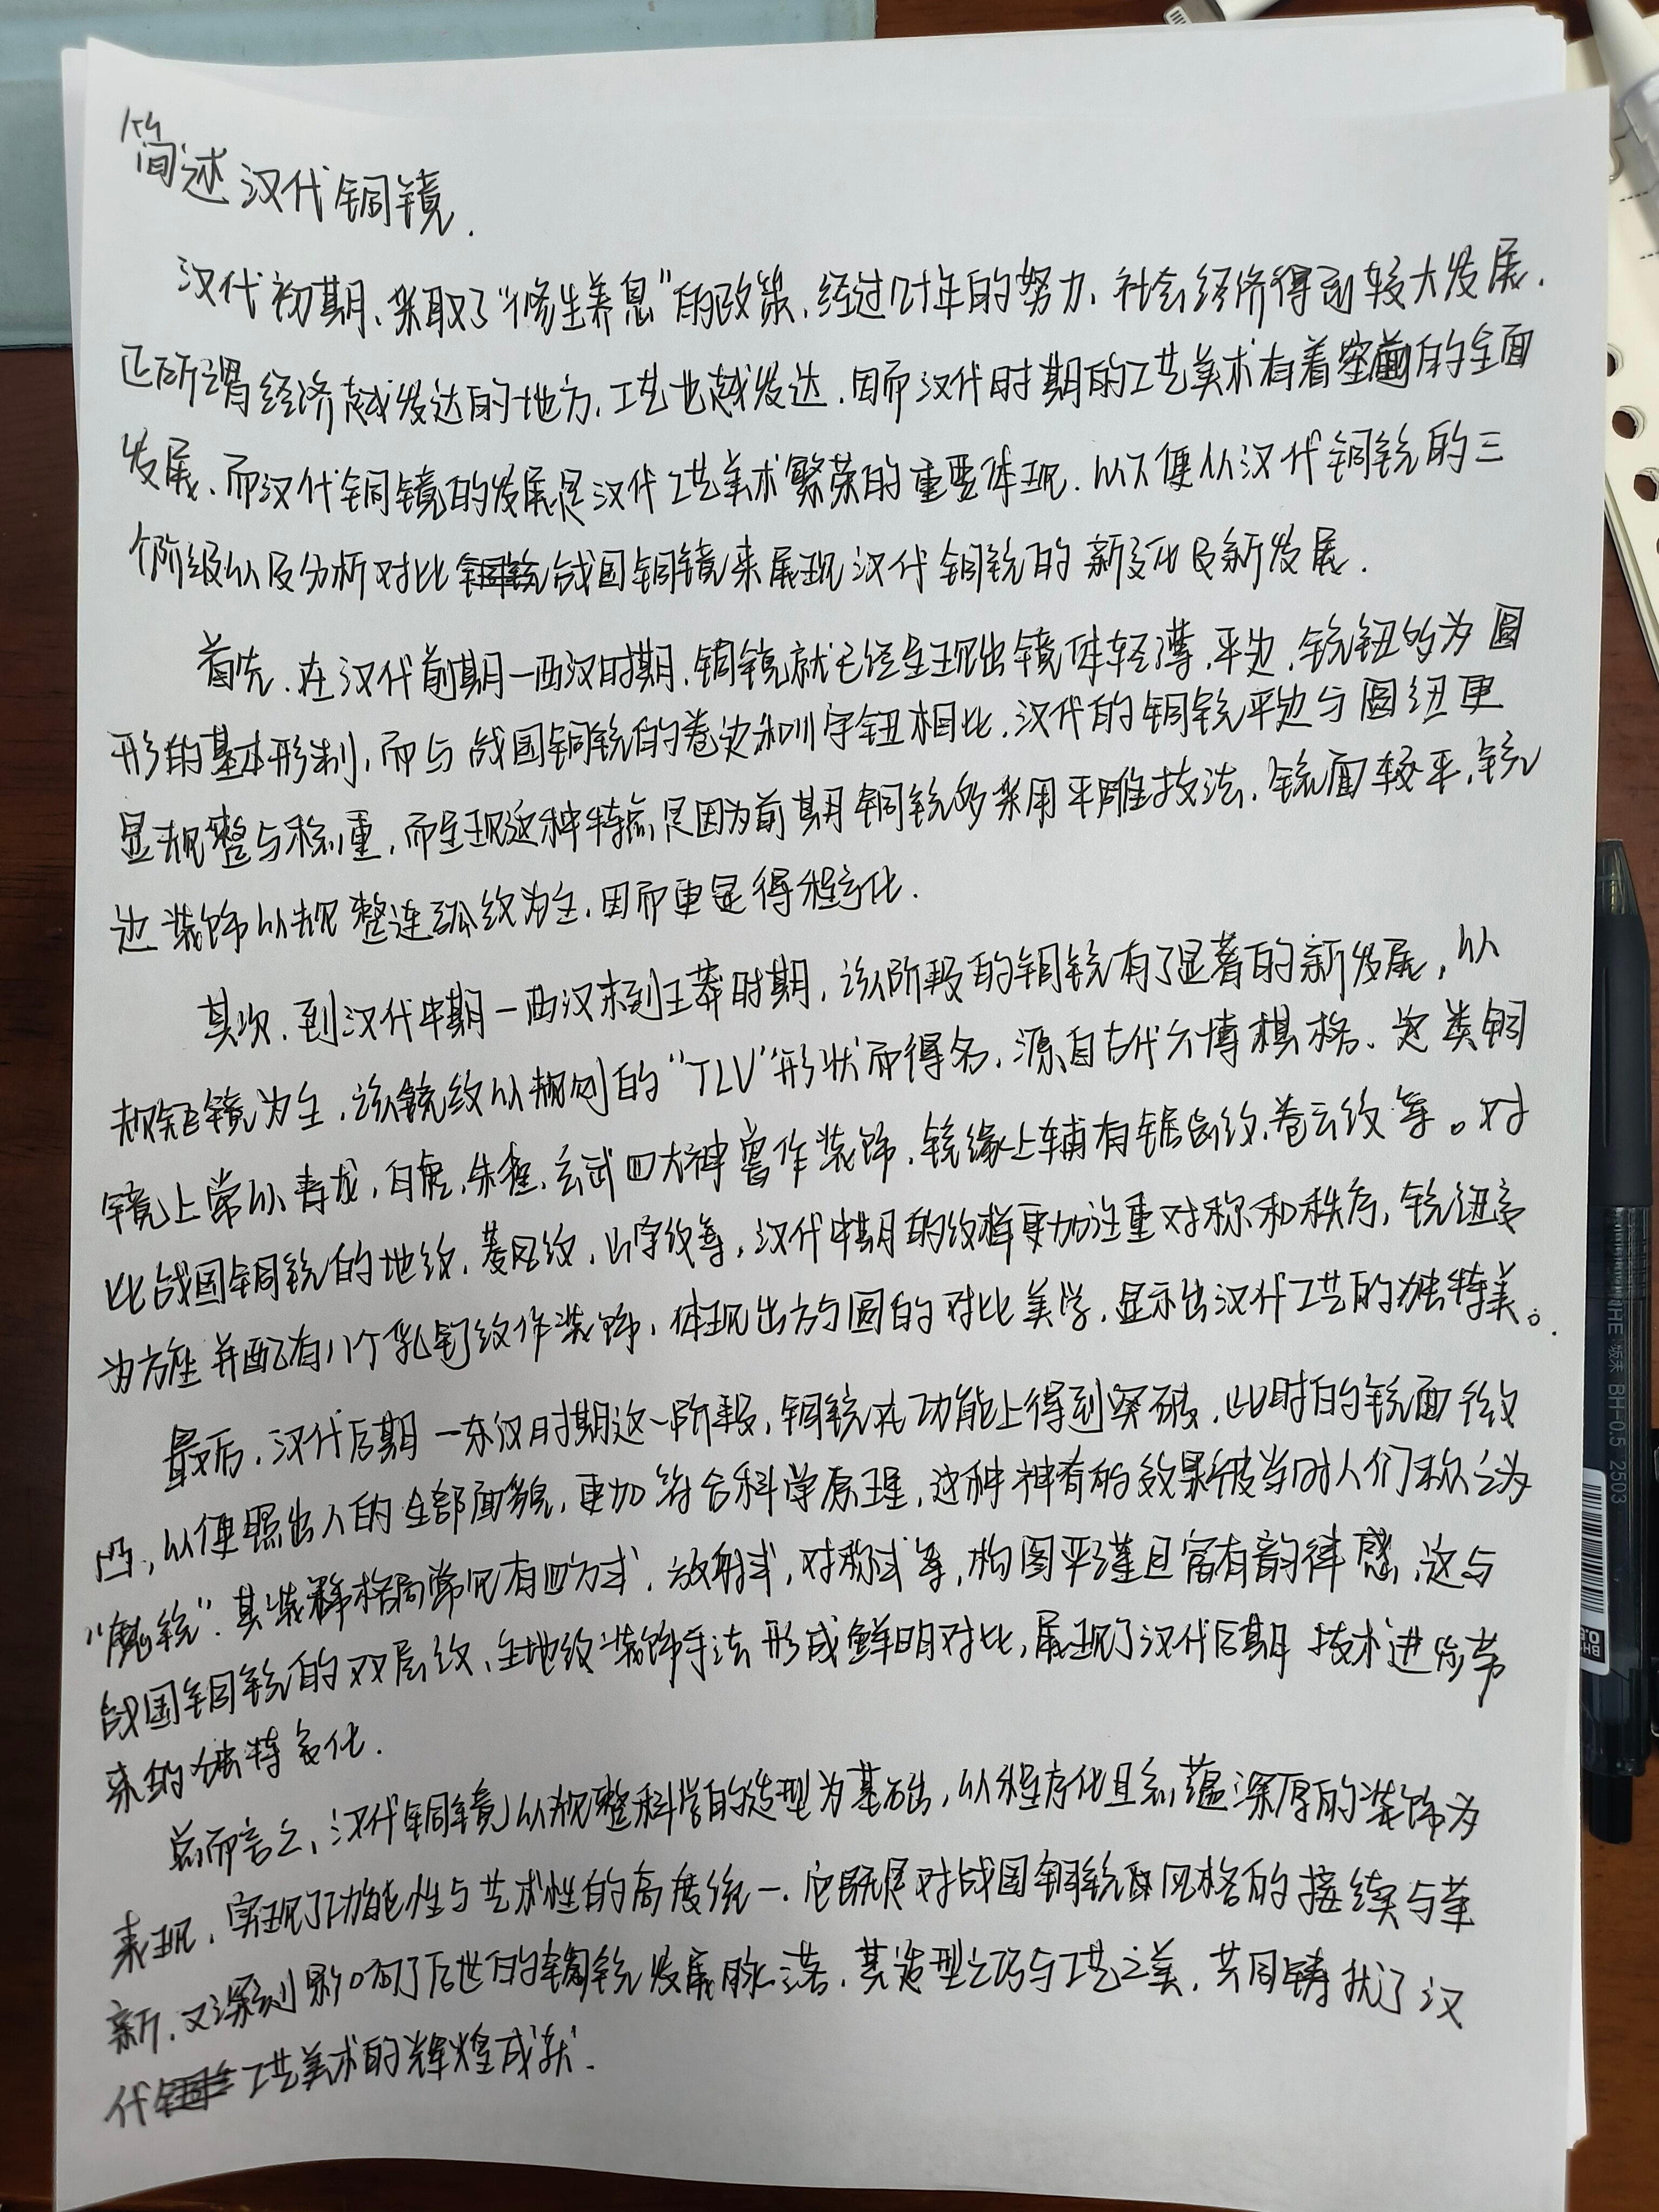 简述汉代铜镜.
汉代初期、采取了“修生养息”的政策,经过几十年的努力、社会经济得到较大发展.
正所谓经济越发达的地方、工艺也越发达.因而汉代时期的工艺美术有着空前的全面
发展、而汉代铜镜的发展是汉代工艺美术繁荣的重要体现.以下便从汉代铜镜的三
个阶级以及分析对比战国铜镜来展现汉代铜镜的新变化及新发展.
首先.在汉代前期—西汉时期.铜镜就已经呈现出镜体轻薄.平边.镜钮多为圆
形的基本形制,而与战国铜镜的卷边和川字钮相比.汉代的铜镜平边与圆纽更
显规整与稳重,而呈现这种特点是因为前期铜镜多采用平雕技法.镜面较平,镜
边装饰以规整连弧纹为主.因而更显得程序化.
其次.到汉代中期—西汉末到王莽时期,该阶段的铜镜有了显著的新发展,以
规矩镜为主.该镜纹以规则的“TLV”形状而得名.源自古代六博棋格、这类铜
镜上常以青龙,白虎,朱雀,玄武四大神兽作装饰.镜缘上辅有锯齿纹、卷云纹等。对
比战国铜镜的地纹、菱风纹,山字纹等,汉代中期的纹样更加注重对称和秩序,镜钮多
为方座并配有八个乳钉纹作装饰,体现出方与圆的对比美学,显示出汉代工艺的独特美。.
最后.汉代后期—东汉时期这一阶段,铜镜在功能上得到突破.此时的镜面微
凸,以便照出人的全部面貌,更加符合科学原理,这种神奇的效果被当时人们称之为
“魔镜”.其装饰格局常见有四方式、放射式,对称式等,构图严谨且富有韵律感,这与
战国铜镜的双层纹、全地纹装饰手法形成鲜明对比,展现了汉代后期技术进步带
来的独特变化.
总而言之,汉代铜镜以规整科学的造型为基础,以程序化且底蕴深厚的装饰为
表现,实现了功能性与艺术性的高度统一.它既是对战国铜镜风格的接续与革
新.又深刻影响了后世的铜镜发展脉络.其造型之巧与工艺之美.共同铸就了汉
代工艺美术的辉煌成就.
BH-0.5 2503